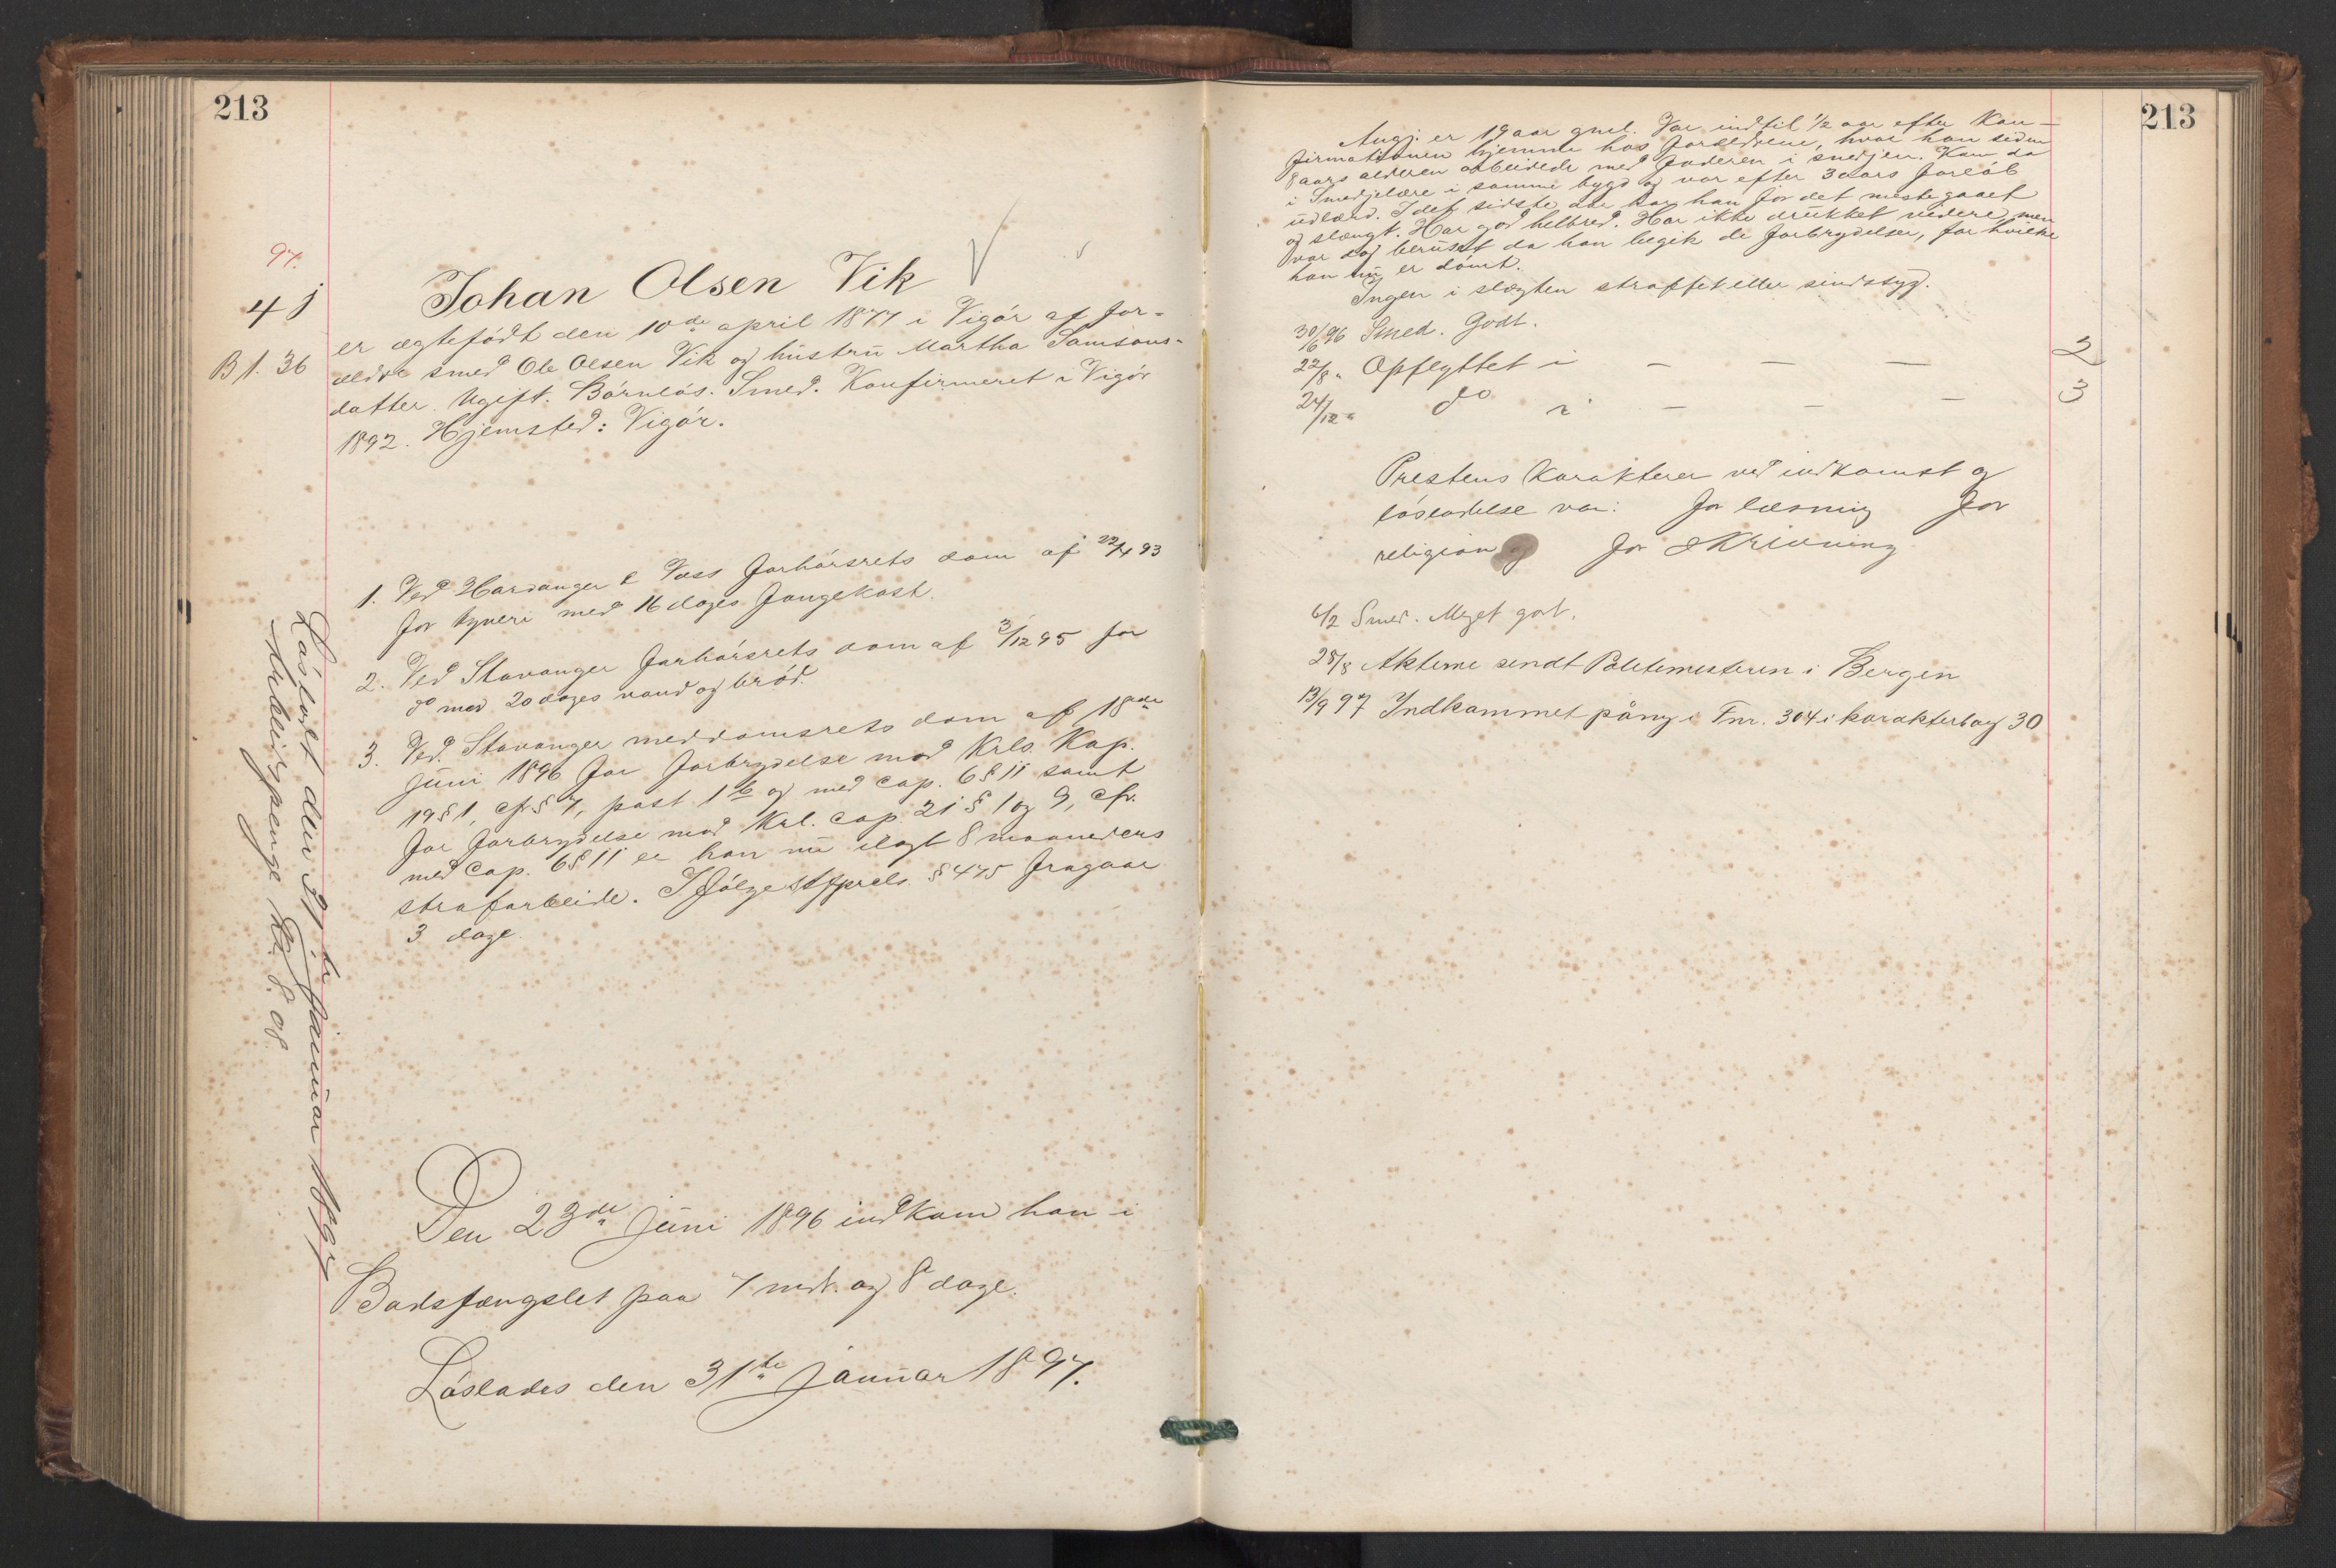 213
97.
4 j
B 1. 36
Johan Olsen Vik
er ægtefödt den 10de april 1877 i Vigör af for-
ældre smed Ole Olsen Vik og hustru Martha Samsons-
datter. Ugift. Börnlös. Smed. Konfirmeret i Vigör
1892. Hjemsted: Vigör.
1. Ved Hardanger & Voss forhörsrets dom af 22/4 93
for tyveri med 16 dages fangekost.
2. Ved Stavanger forhörsrets dom af 3/12 95 for
do med 20 dages vand og bröd.
3. Ved Stavanger meddomsrets dom af 18de
juni 1896 for forbrydelse mod Krls. Kap.
19 § 1, cfr § 7, post 1 b og med cap. 6 § 11 samt
for forbrydelse mod Krl. cap. 21 § 1 og 9, cfr.
med Cap. 6 § 11 er han nu ilagt 8 maaneders
strafarbeide. I fölge Stfprcls. § 475 fragaar
3 dage.
Löslodt den 31te januar 1897
Arbeidspenge Kr. 8.08
Den 23de juni 1896 indkom han i
Bodsfængslet paa 7 mdr. og 8 dage.
Löslades den 31te januar 1897.
213
Angj. er 19 aar gml. Var indtil 1/2 aar efter Kon-
firmationen hjemme hos forældrene, hvor han siden
8 aars alderen arbeidede med faderen i smedjen. Kom da
i Smedjelære i samme bygd og var efter 3 aars forlöb
udlærd. I det sidste aar har han for det meste gaaet
og slængt. Har god helbred. Har ikke drukket videre, men
var dog beruset da han begik de forbrydelser, for hvilke
han nu er dömt.
Ingen i slægten straffet eller sindssyg.
30/6 96 Smed. Godt.
22/8 " Opflyttet i — — — 2
24/12 " do i — — — 3
Prestens Karakterer ved indkomst og
lösladelse var: for læsning for
religion og for skrivning
6/2 Smed. Meget godt.
28/8 Akterne sendt Politimesteren i Bergen
13/9 97 Indkommet påny i Fnr. 304 i karakterbog 30